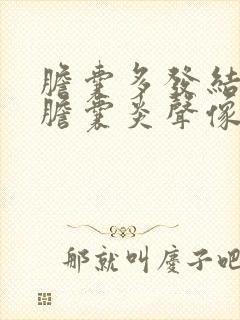 膽囊多發結
膽囊炎聲像
那就叫慶子吧